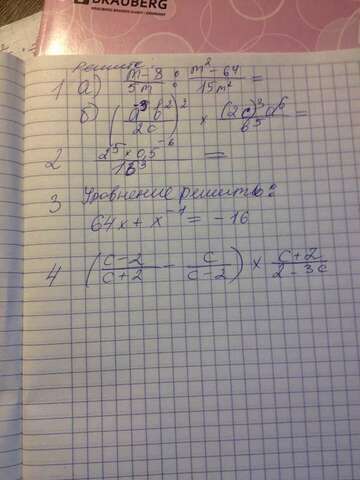 BRAUBERG
решите
1 а) (m-8)/(5m) : (m²-64)/(15m²) =
б) ((a⁻³b²)/(2c))² × ((2c)³a⁶)/(b⁵) =
2 (2⁵×0,5⁻⁶)/(16³) =
3 Уравнение решить:
64x + x⁻¹ = -16
4 ((c-2)/(c+2) - c/(c-2)) × (c+2)/(2-3c)